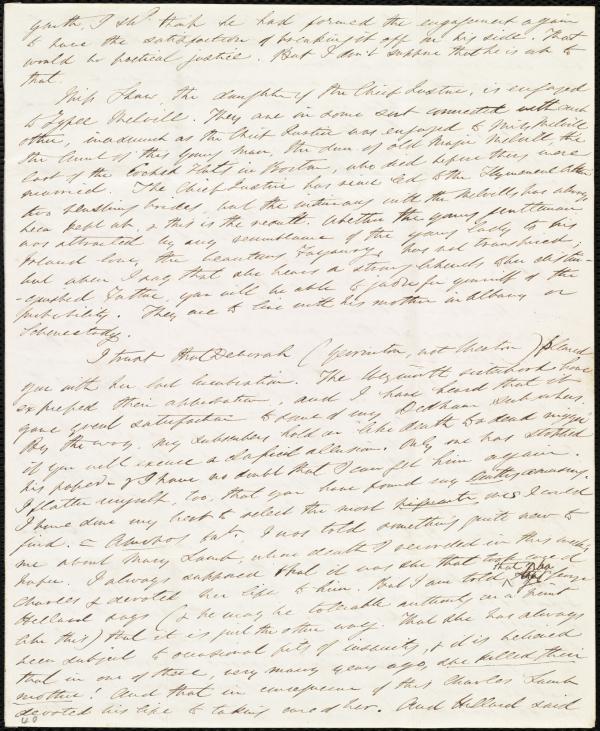 youth, I shd. think he had formed the engagement again
to have the satisfaction of breaking it off on his side. That
would be poetical justice. But I don't suppose that he is up to
that.
Miss Shaw, the daughter of the Chief Justice, is engaged
to Typee Melville. They are in some sort connected with each
other, inasmuch as the Chief Justice was engaged to Miss Melvill
the Aunt of this young man, the dau of old Major Melvill, the
last of the Cocked Hats in Boston, who died before they were
married. The Chief Justice has since led to the Hymeneal Altar
two blushing brides, but the intimacy with the Melvills has always
been kept up, & this is the result. Whether the young gentleman
was attracted by any resemblance of the young lady to his
Island love, the beauteous Fayaway, has not transpired;
but when I say that she bears a strong likeness to her distin-
-guished Father, you will be able to judge for yourself of the
probability. They are to live with his mother in Albany or
Schenectady.
I trust that Deborah ( , not Weston) pleased
you with her last lucubration. The Weymouth sisterhood have
expressed their approbation, and I have heard that it
gave great satisfaction to some of my Dedham subscribers.
By the way, my subscribers hold on like death to a dead nigger
if you will excuse a allusion. Only one has stopped
his paper & I have no doubt that I can get him again.
I flatter myself, too, that you have found my
I have done my best to select the most piquante ones I could
find. = Apropos but, I was told something quite new to
me about Mary Lamb, whose death I recorded in this week's
paper. I always supposed that it was she that took care of
Charles & devoted her life to him. But I am told, that
Hillard says (& he may be tolerable authority on a point
like this) that it is just the other way. That she has always
been subject to occasional fits of insanity, & it is believed
that in one of these, very many years ago, she killed their
mother! And that in consequence of this Charles Lamb
devoted his life to taking care of her. And Hillard said
40